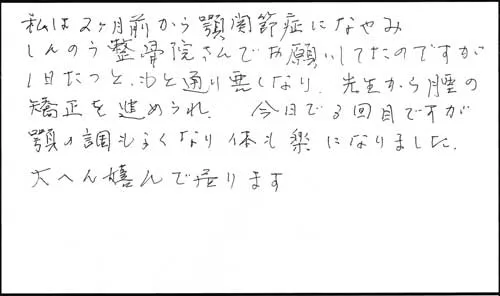 私は2ヶ月前から顎関節症になやみ
しんのう整骨院さんでお願いしてたのですが
1日たつともと通り悪くなり、先生から腰の
矯正を進められ 今日で3回目ですが
顎の調もよくなり体も楽になりました.
大へん嬉んで居ります